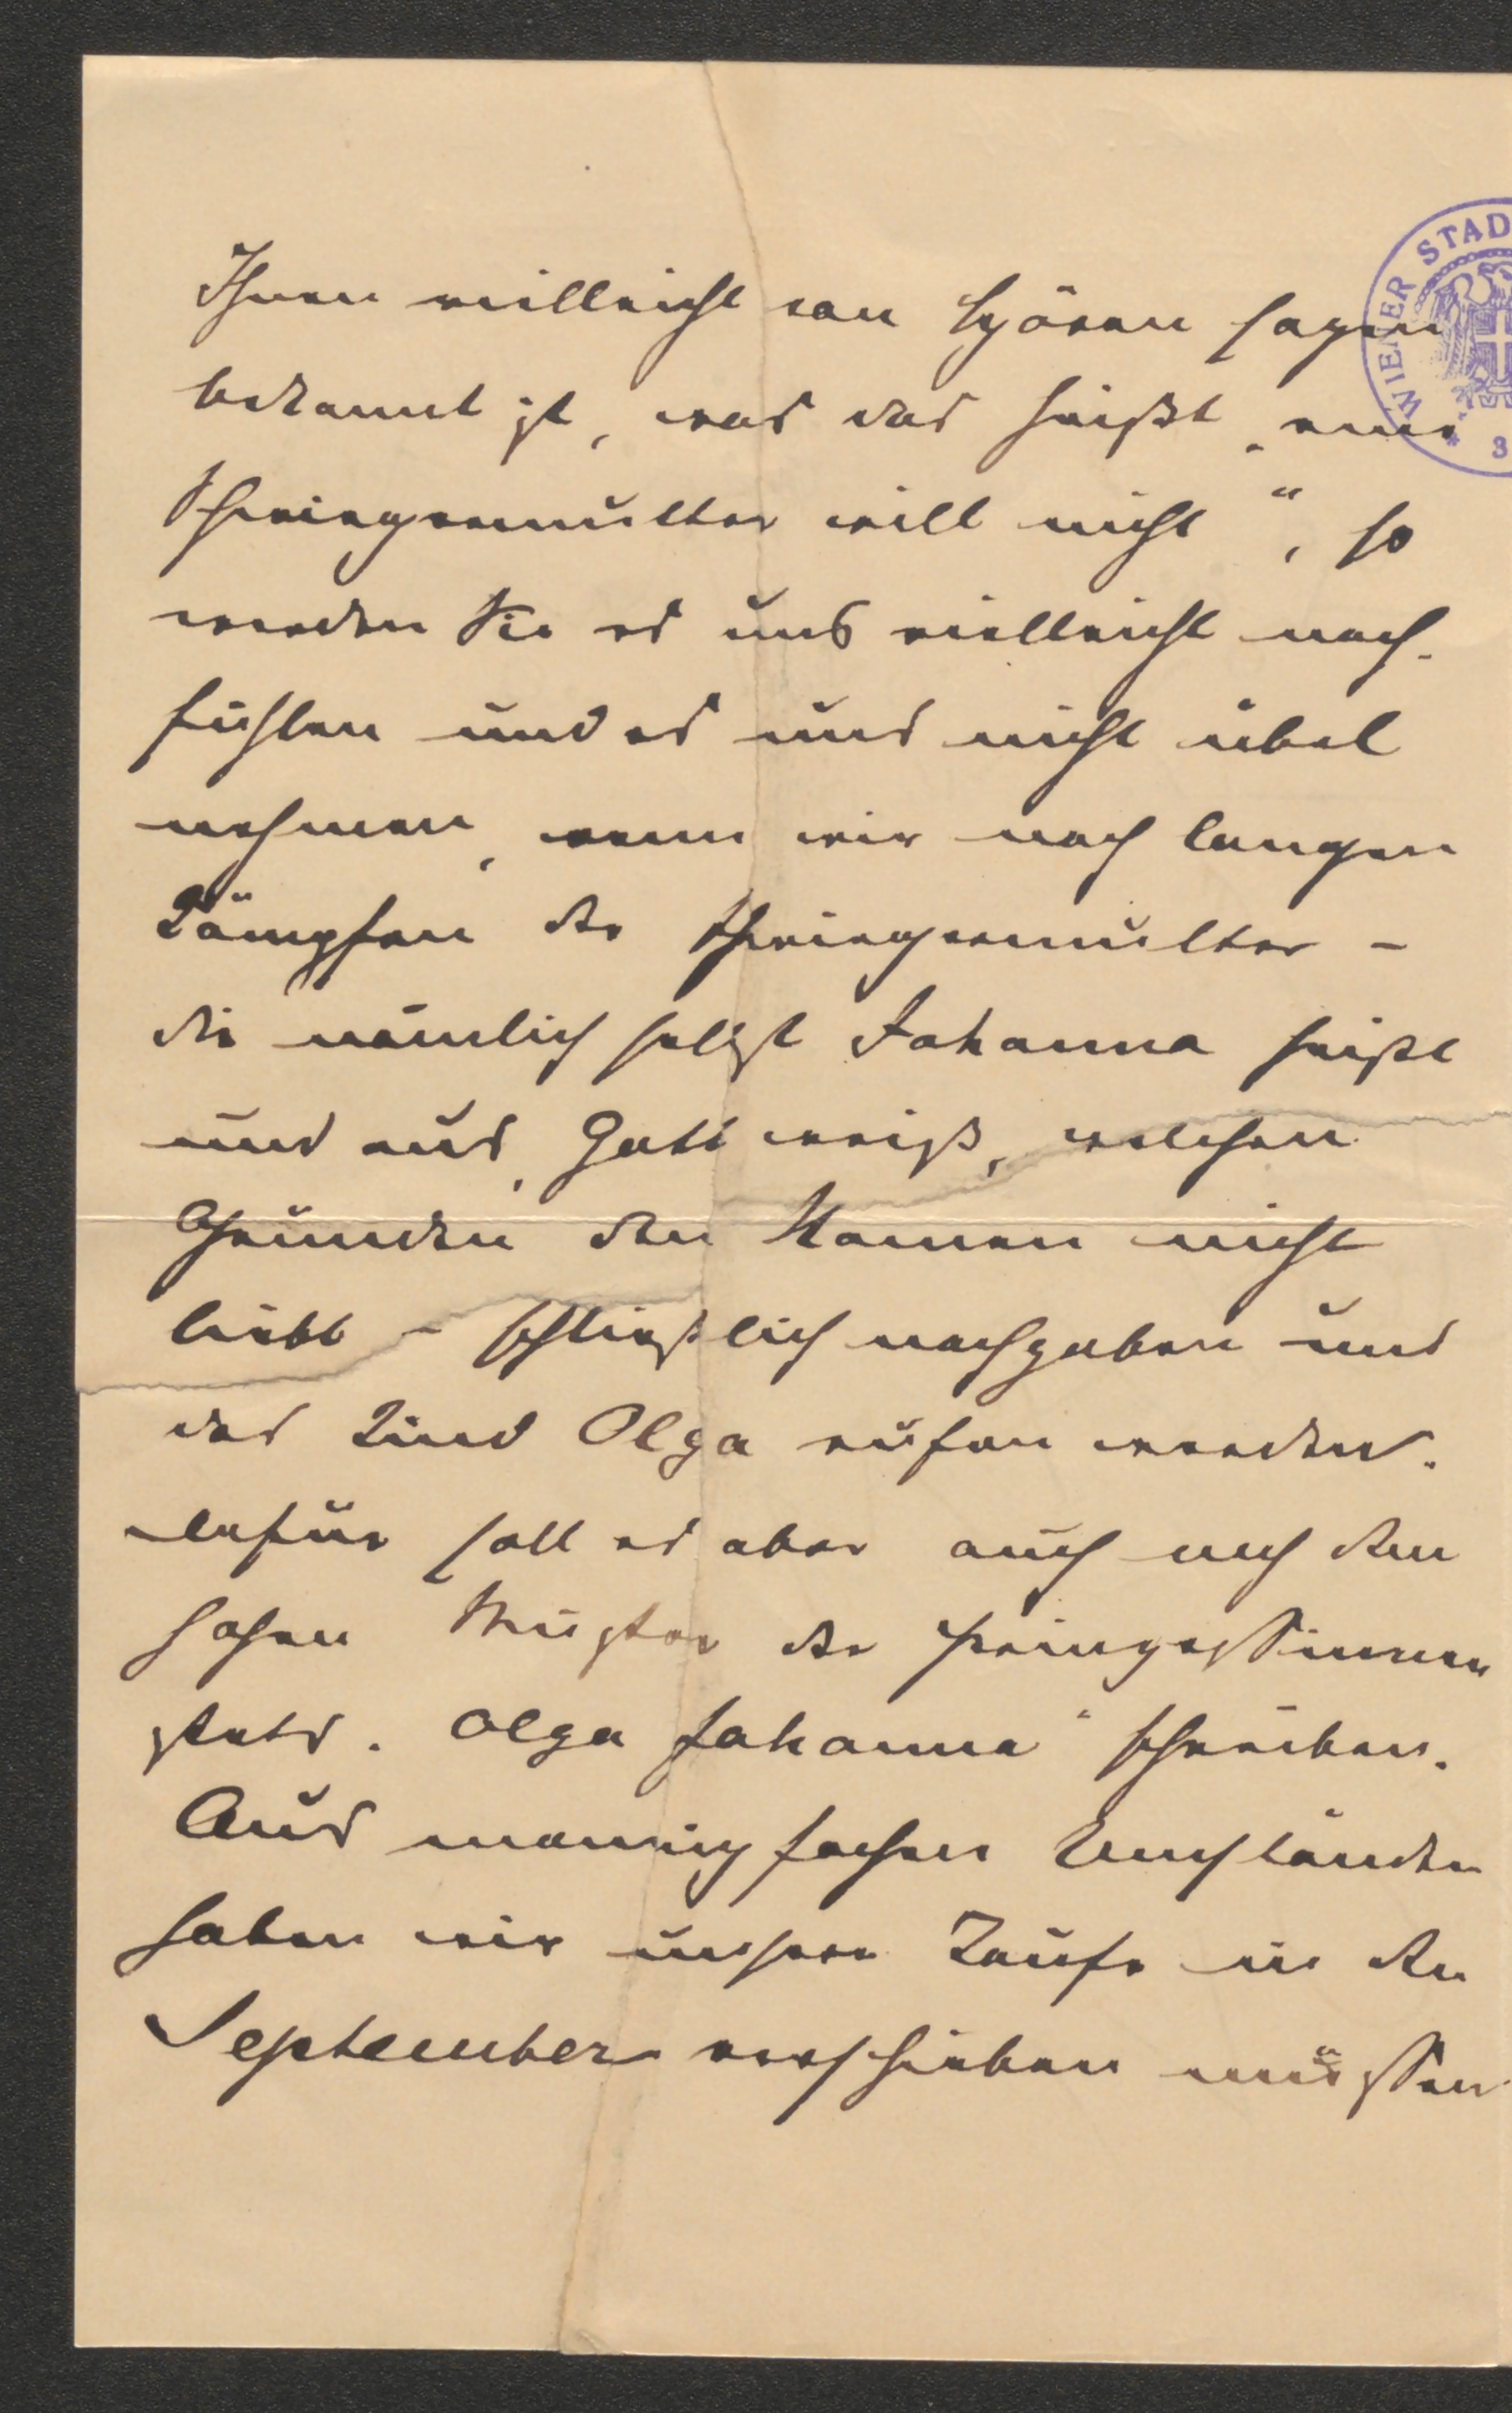 Ihnen vielleicht vom Hören sagen
bekannt ist, was das heißt „eine
Schwiegermutter will nicht“, so
werden Sie es uns vielleicht nach-
fühlen und es uns nicht übel
nehmen, wenn wir nach langen
Kämpfen der Schwiegermutter –
die nämlich selbst Johanna heißt
und aus, Gott weiß, welchen
Gründen den Namen nicht
liebt – schließlich nachgaben und
das Kind Olga rufen werden.
dafür soll es aber auch nach dem
hohen Muster der Prinzessinnen
stets „Olga Johanna“ schreiben.
Aus mannigfachen Umständen
haben wir unsere Taufe in den
September verschieben müssen
WIENER STAD
3